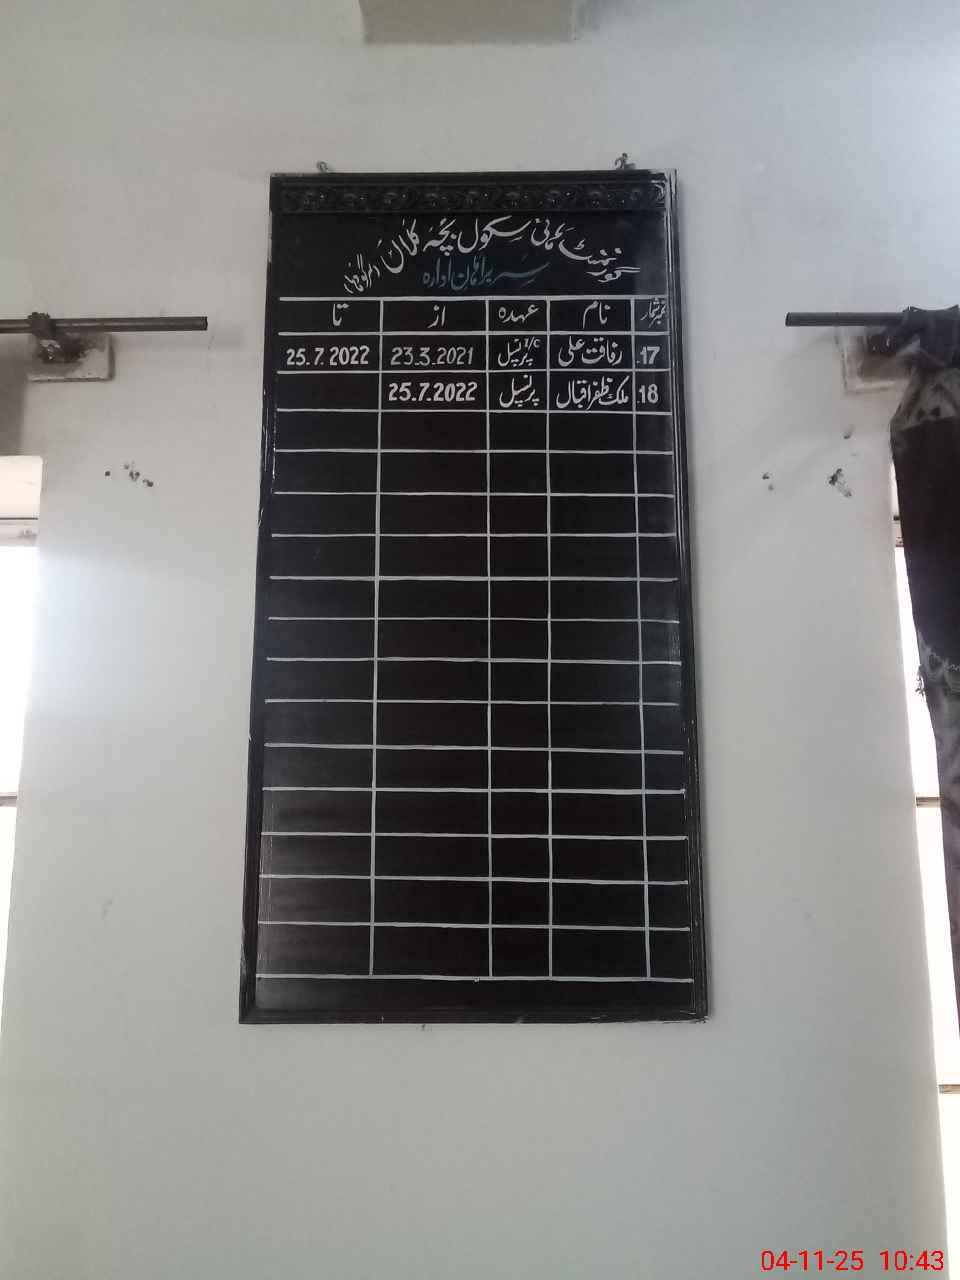 گورنمنٹ ہائی سکول بچہ کلاں (سرگودھا)
سربراہان ادارہ
نمبر شمار نام عہدہ از تا
17. رفاقت علی I/C پرنسپل 23.3.2021 25.7.2022
18. ملک ظفر اقبال پرنسپل 25.7.2022
04-11-25 10:43